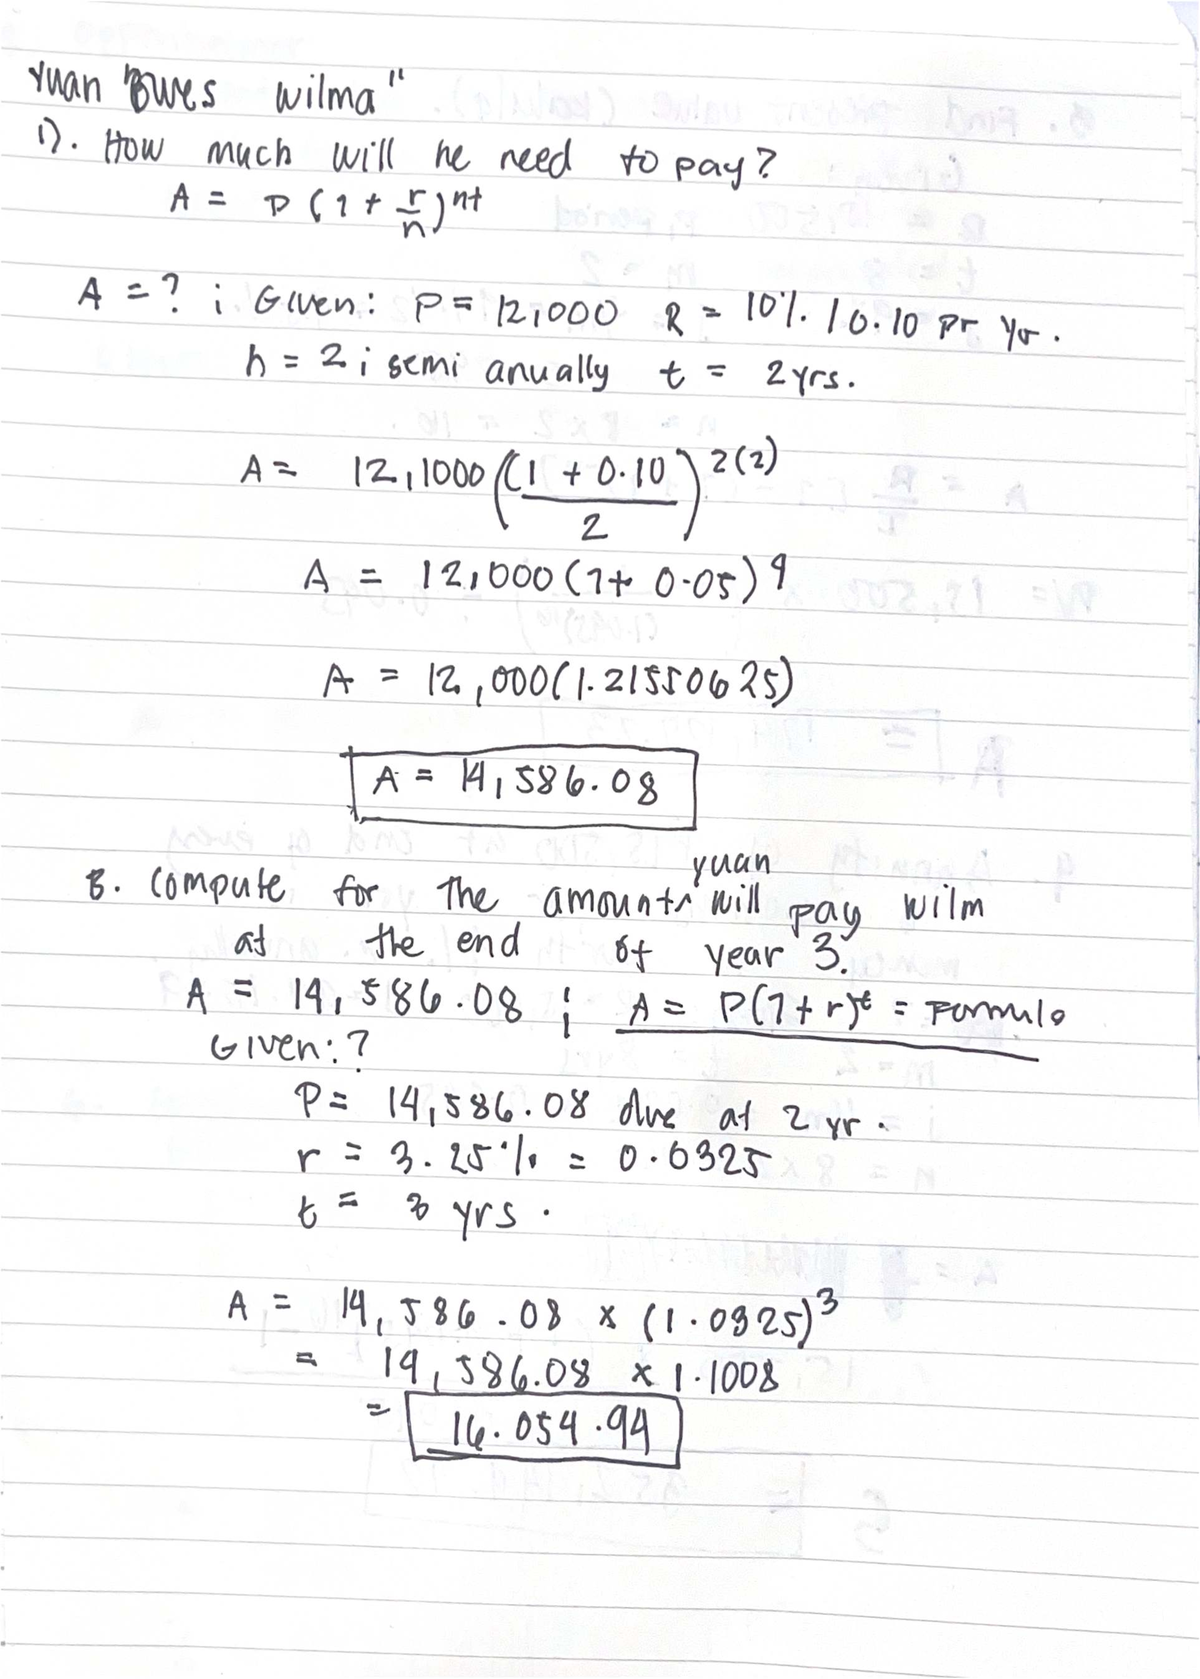 Yuan "Owes Wilma"
1). How much will he need to pay?
A = P (1 + r/n)nt
A = ? ; Given: P = 12,000 R = 10% / 0.10 pr yr.
n = 2 ; semi anually t = 2 yrs.
A = 12,1000 ((1 + 0.10)/2)2(2)
A = 12,000 (1 + 0.05)4
A = 12,000(1.21550625)
A = 14,586.08
B. Compute for the amount yuan will pay wilm
at the end of year 3.
A = 14,586.08 ; A = P(1+r)t = Formula
Given:?
P = 14,586.08 due at 2 yr.
r = 3.25% = 0.0325
t = 3 yrs.
A = 14,586.08 x (1.0325)3
= 14,586.08 x 1.1008
= 16.054.94